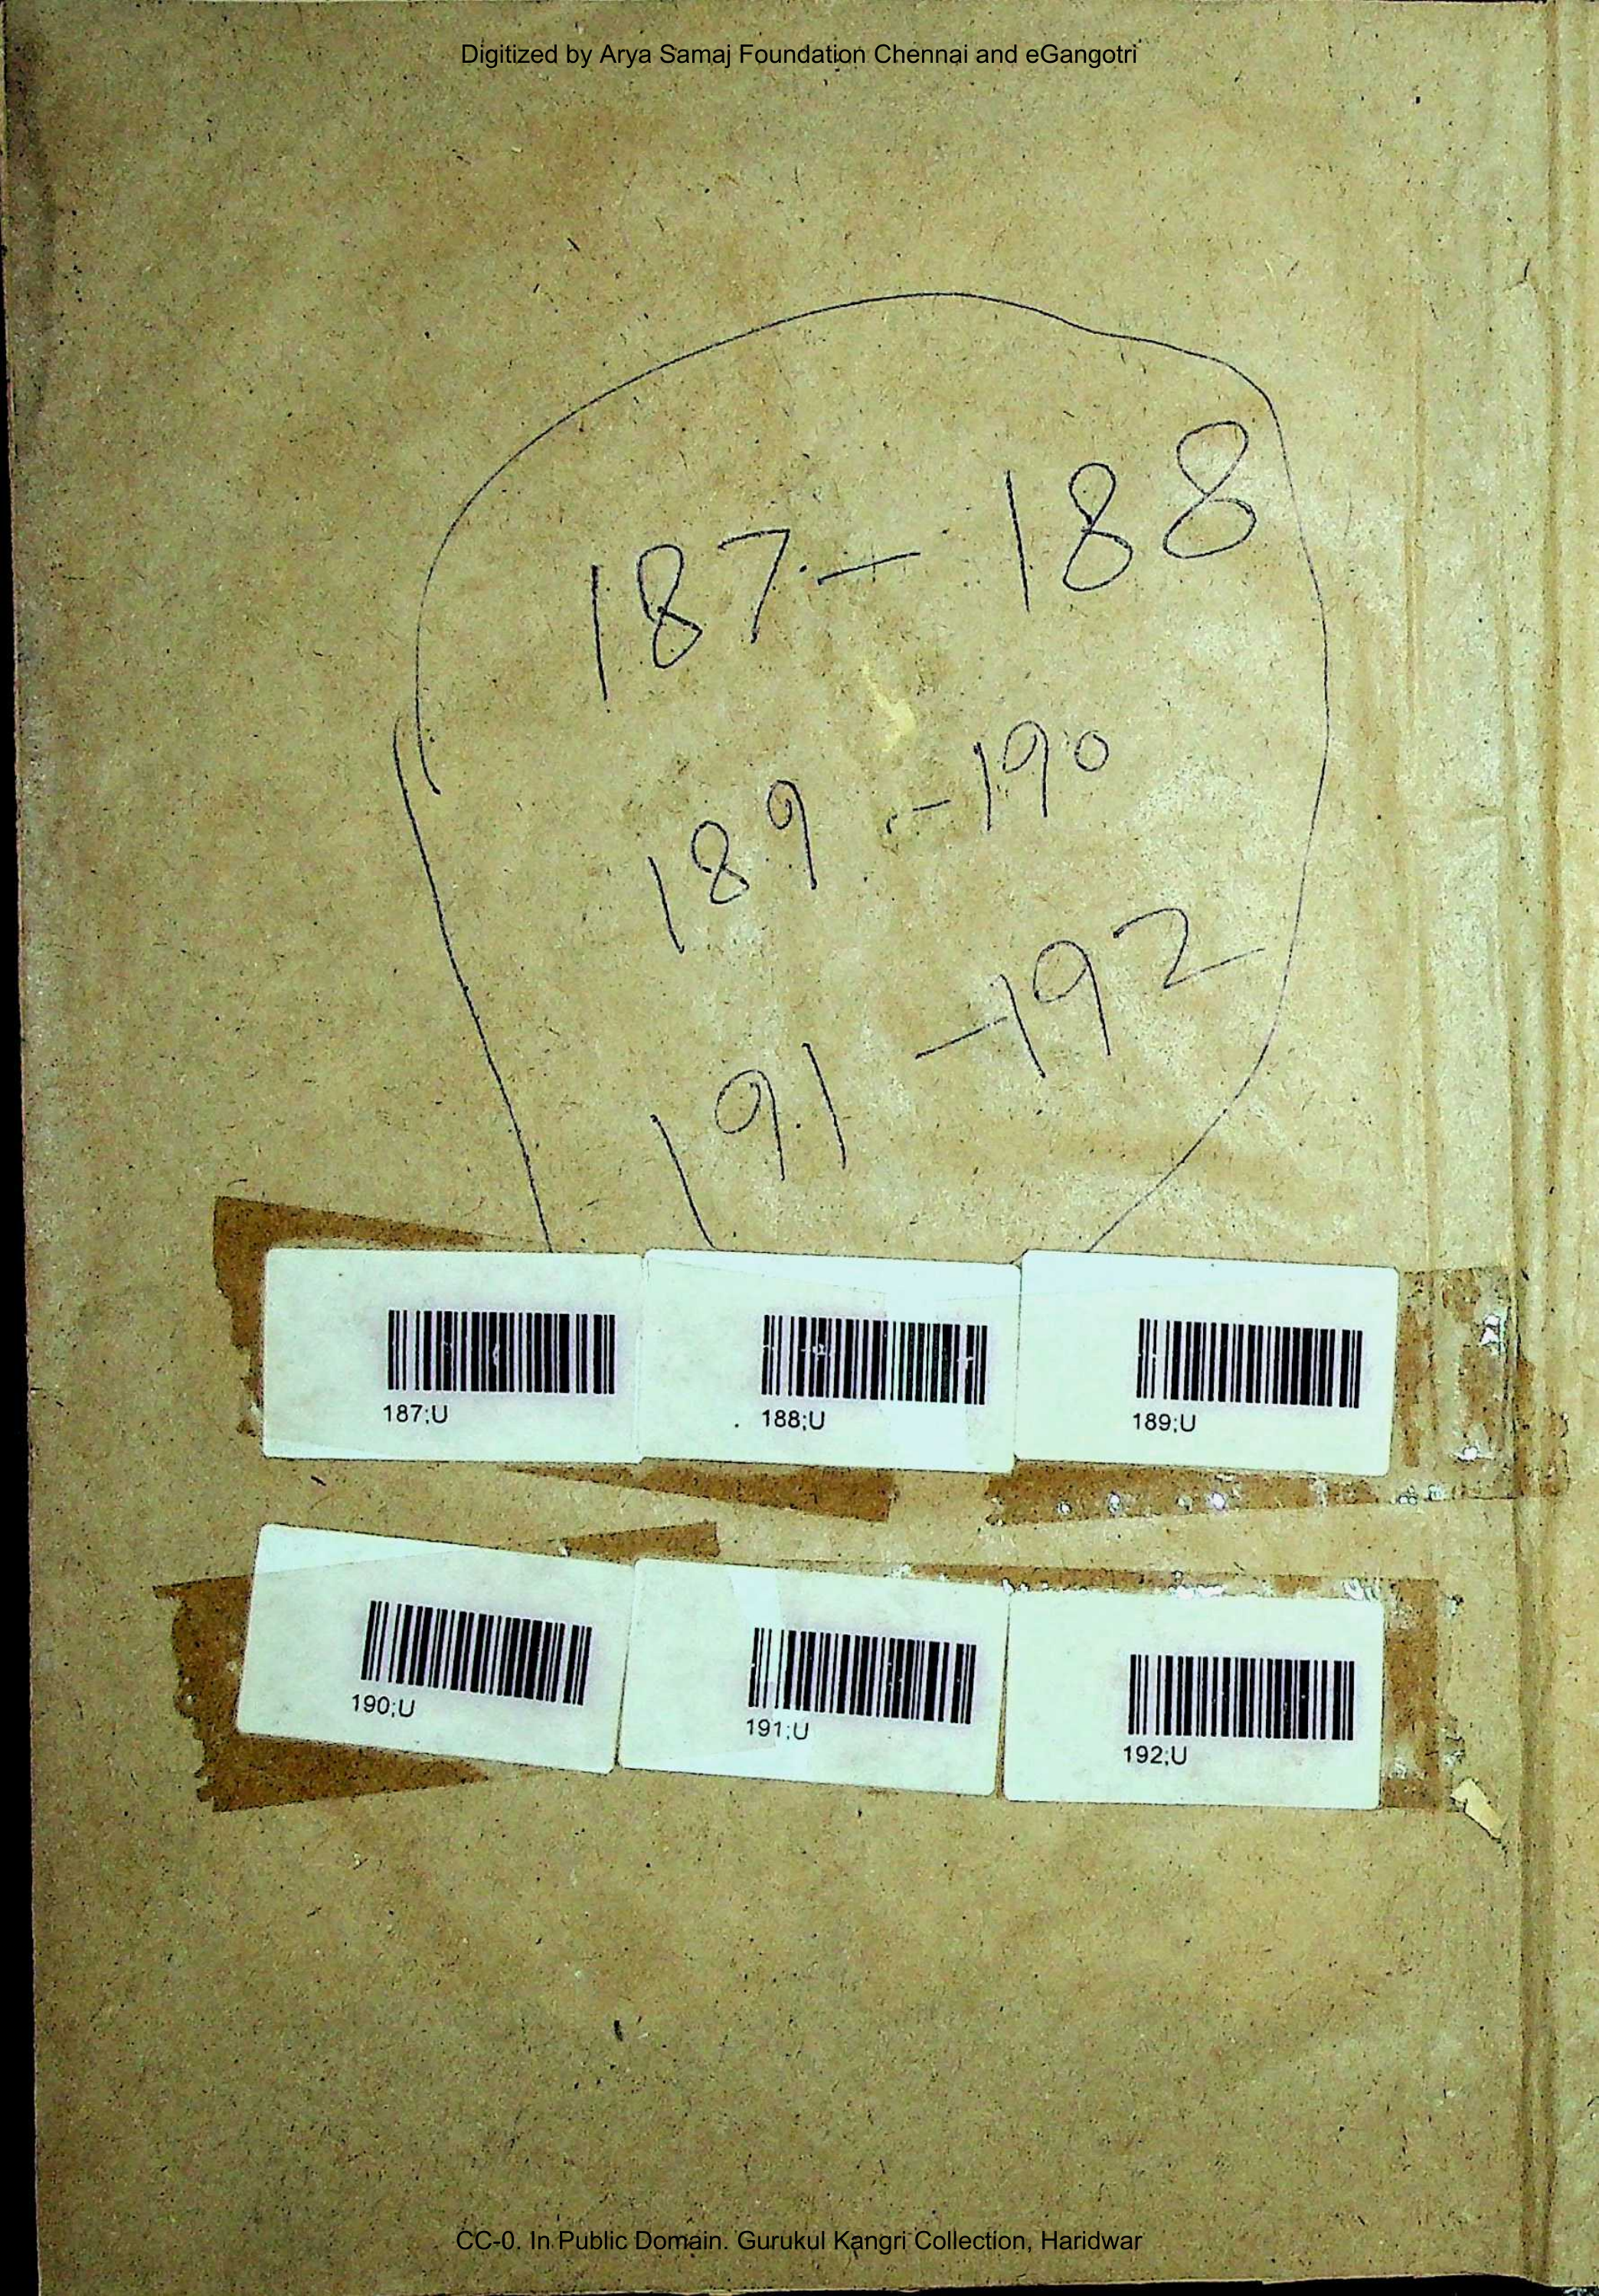 Digitized by Arya Samaj Foundation Chennai and eGangotri
187 - 188
189 - 190
191 - 192
187;U
188;U
189;U
190;U
191;U
192;U
CC-0. In Public Domain. Gurukul Kangri Collection, Haridwar